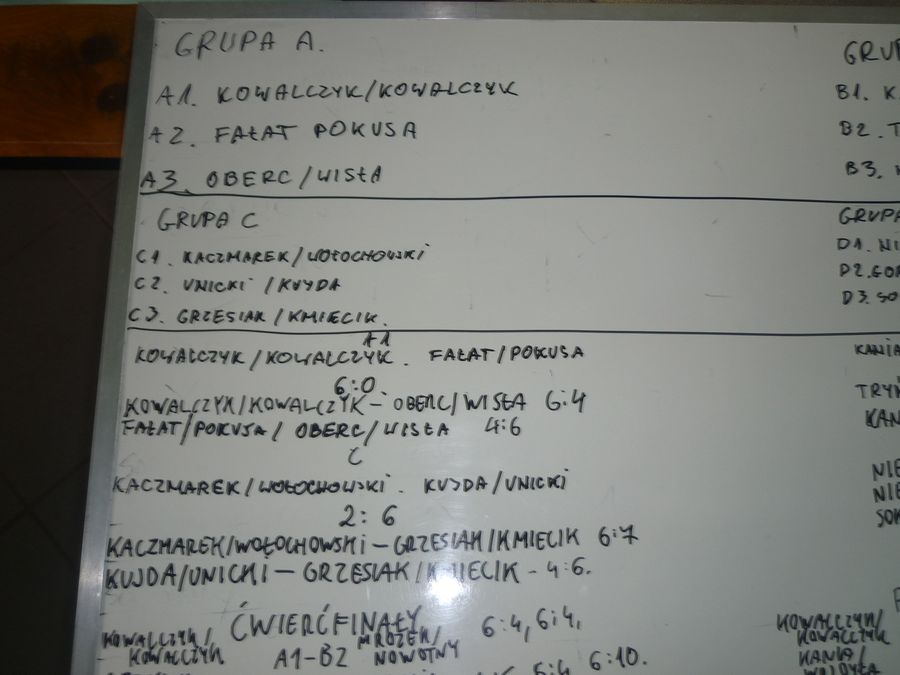 GRUPA A.
A1. KOWALCZYK/KOWALCZYK
A2. FAŁAT POKUSA
A3. OBERC/WISŁA
GRUPA C
C1. KACZMAREK/WOŁOCHOWSKI
C2. UNICKI/KUJDA
C3. GRZESIAK/KMIECIK.
A1
KOWALCZYK/KOWALCZYK. FAŁAT/POKUSA
6:0.
KOWALCZYK/KOWALCZYK - OBERC/WISŁA 6:4
FAŁAT/POKUSA/ OBERC/WISŁA 4:6
C
KACZMAREK/WOŁOCHOWSKI. KUJDA/UNICKI
2:6
KACZMAREK/WOŁOCHOWSKI - GRZESIAK/KMIECIK 6:7
KUJDA/UNICKI - GRZESIAK/KMIECIK - 4:6.
ĆWIERĆFINAŁY
KOWALCZYK/ MROZEK/ 6:4, 6:4,
KOWALCZYK A1-B2 NOWOTNY
6:4 6:10.
GRUP
B1. K
B2. T
B3.
GRUPA
D1. NI
D2. GOR
D3. SO
KANIA
TRYN
KAN
NIE
NIE
SOK
KOWALCZYK/
KOWALCZYK
KANIA/
WOJDYŁA